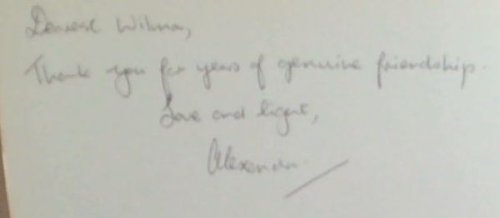 Dearest Wilma,
Thank you for years of genuine friendship.
Love and light,
Alexandra